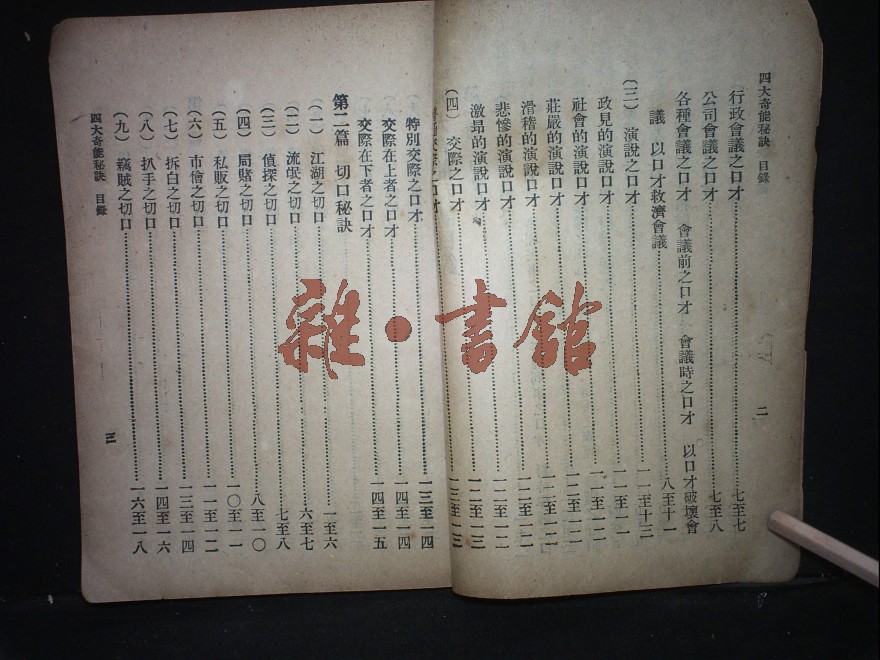 四大奇能秘訣 目錄
二
行政會議之口才……七至七
公司會議之口才……七至八
各種會議之口才 會議前之口才 會議時之口才 以口才破壞會
議 以口才救濟會議……八至十一
(三) 演說之口才……一一至十三
政見的演說口才……一一至一一
社會的演說口才……一一至一二
莊嚴的演說口才……一二至一二
滑稽的演說口才……一二至一二
悲慘的演說口才……一二至一二
激昂的演說口才……一二至一三
(四) 交際之口才……一三至一五
普通交際之口才
特別交際之口才……一三至一四
交際在上者之口才……一四至一四
交際在下者之口才……一四至一五
第二篇 切口秘訣
(一) 江湖之切口……一至六
(二) 流氓之切口……六至七
(三) 偵探之切口……七至八
(四) 局賭之切口……八至一〇
(五) 私販之切口……一〇至一一
(六) 市儈之切口……一一至一二
(七) 拆白之切口……一三至一四
(八) 扒手之切口……一四至一六
(九) 竊賊之切口……一六至一八
四大奇能秘訣 目錄
三
雜·書館